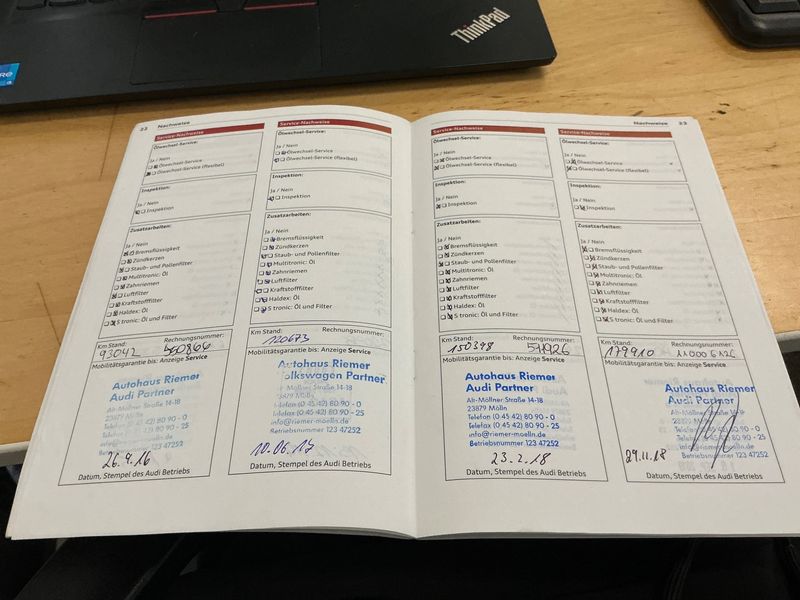 ThinkPad
22 Nachweise
Service-Nachweise
Ölwechsel-Service:
Ja / Nein
Ölwechsel-Service
Ölwechsel-Service (flexibel)
Inspektion:
Ja / Nein
Inspektion
Zusatzarbeiten:
Ja / Nein
Bremsflüssigkeit
Zündkerzen
Staub- und Pollenfilter
Multitronic: Öl
Zahnriemen
Luftfilter
Kraftstofffilter
Haldex: Öl
S tronic: Öl und Filter
Km Stand: Rechnungsnummer:
93042 560866
Mobilitätsgarantie bis: Anzeige Service
Autohaus Riemer
Audi Partner
Alt-Möllner Straße 14-18
23879 Mölln
Telefon (0 45 42) 80 90 - 0
Telefax (0 45 42) 80 90 - 25
info@riemer-moelln.de
Betriebsnummer 123 47252
26.4.16
Datum, Stempel des Audi Betriebs
Service-Nachweise
Ölwechsel-Service:
Ja / Nein
Ölwechsel-Service
Ölwechsel-Service (flexibel)
Inspektion:
Ja / Nein
Inspektion
Zusatzarbeiten:
Ja / Nein
Bremsflüssigkeit
Zündkerzen
Staub- und Pollenfilter
Multitronic: Öl
Zahnriemen
Luftfilter
Kraftstofffilter
Haldex: Öl
S tronic: Öl und Filter
Km Stand: Rechnungsnummer:
120673
Mobilitätsgarantie bis: Anzeige Service
Autohaus Riemer
Volkswagen Partner
Alt-Möllner Straße 14-18
23879 Mölln
Telefon (0 45 42) 80 90 - 0
Telefax (0 45 42) 80 90 - 25
info@riemer-moelln.de
Betriebsnummer 123 47252
10.06.17
Datum, Stempel des Audi Betriebs
Nachweise 23
Service-Nachweise
Ölwechsel-Service:
Ja / Nein
Ölwechsel-Service
Ölwechsel-Service (flexibel)
Inspektion:
Ja / Nein
Inspektion
Zusatzarbeiten:
Ja / Nein
Bremsflüssigkeit
Zündkerzen
Staub- und Pollenfilter
Multitronic: Öl
Zahnriemen
Luftfilter
Kraftstofffilter
Haldex: Öl
S tronic: Öl und Filter
Km Stand: Rechnungsnummer:
150398 54926
Mobilitätsgarantie bis: Anzeige Service
Autohaus Riemer
Audi Partner
Alt-Möllner Straße 14-18
23879 Mölln
Telefon (0 45 42) 80 90 - 0
Telefax (0 45 42) 80 90 - 25
info@riemer-moelln.de
Betriebsnummer 123 47252
23.2.18
Datum, Stempel des Audi Betriebs
Service-Nachweise
Ölwechsel-Service:
Ja / Nein
Ölwechsel-Service
Ölwechsel-Service (flexibel)
Inspektion:
Ja / Nein
Inspektion
Zusatzarbeiten:
Ja / Nein
Bremsflüssigkeit
Zündkerzen
Staub- und Pollenfilter
Multitronic: Öl
Zahnriemen
Luftfilter
Kraftstofffilter
Haldex: Öl
S tronic: Öl und Filter
Km Stand: Rechnungsnummer:
179910 11000 6126
Mobilitätsgarantie bis: Anzeige Service
Autohaus Riemer
Audi Partner
Alt-Möllner Straße 14-18
23879 Mölln
Telefon (0 45 42) 80 90 - 0
Telefax (0 45 42) 80 90 - 25
info@riemer-moelln.de
Betriebsnummer 123 47252
29.11.18
Datum, Stempel des Audi Betriebs